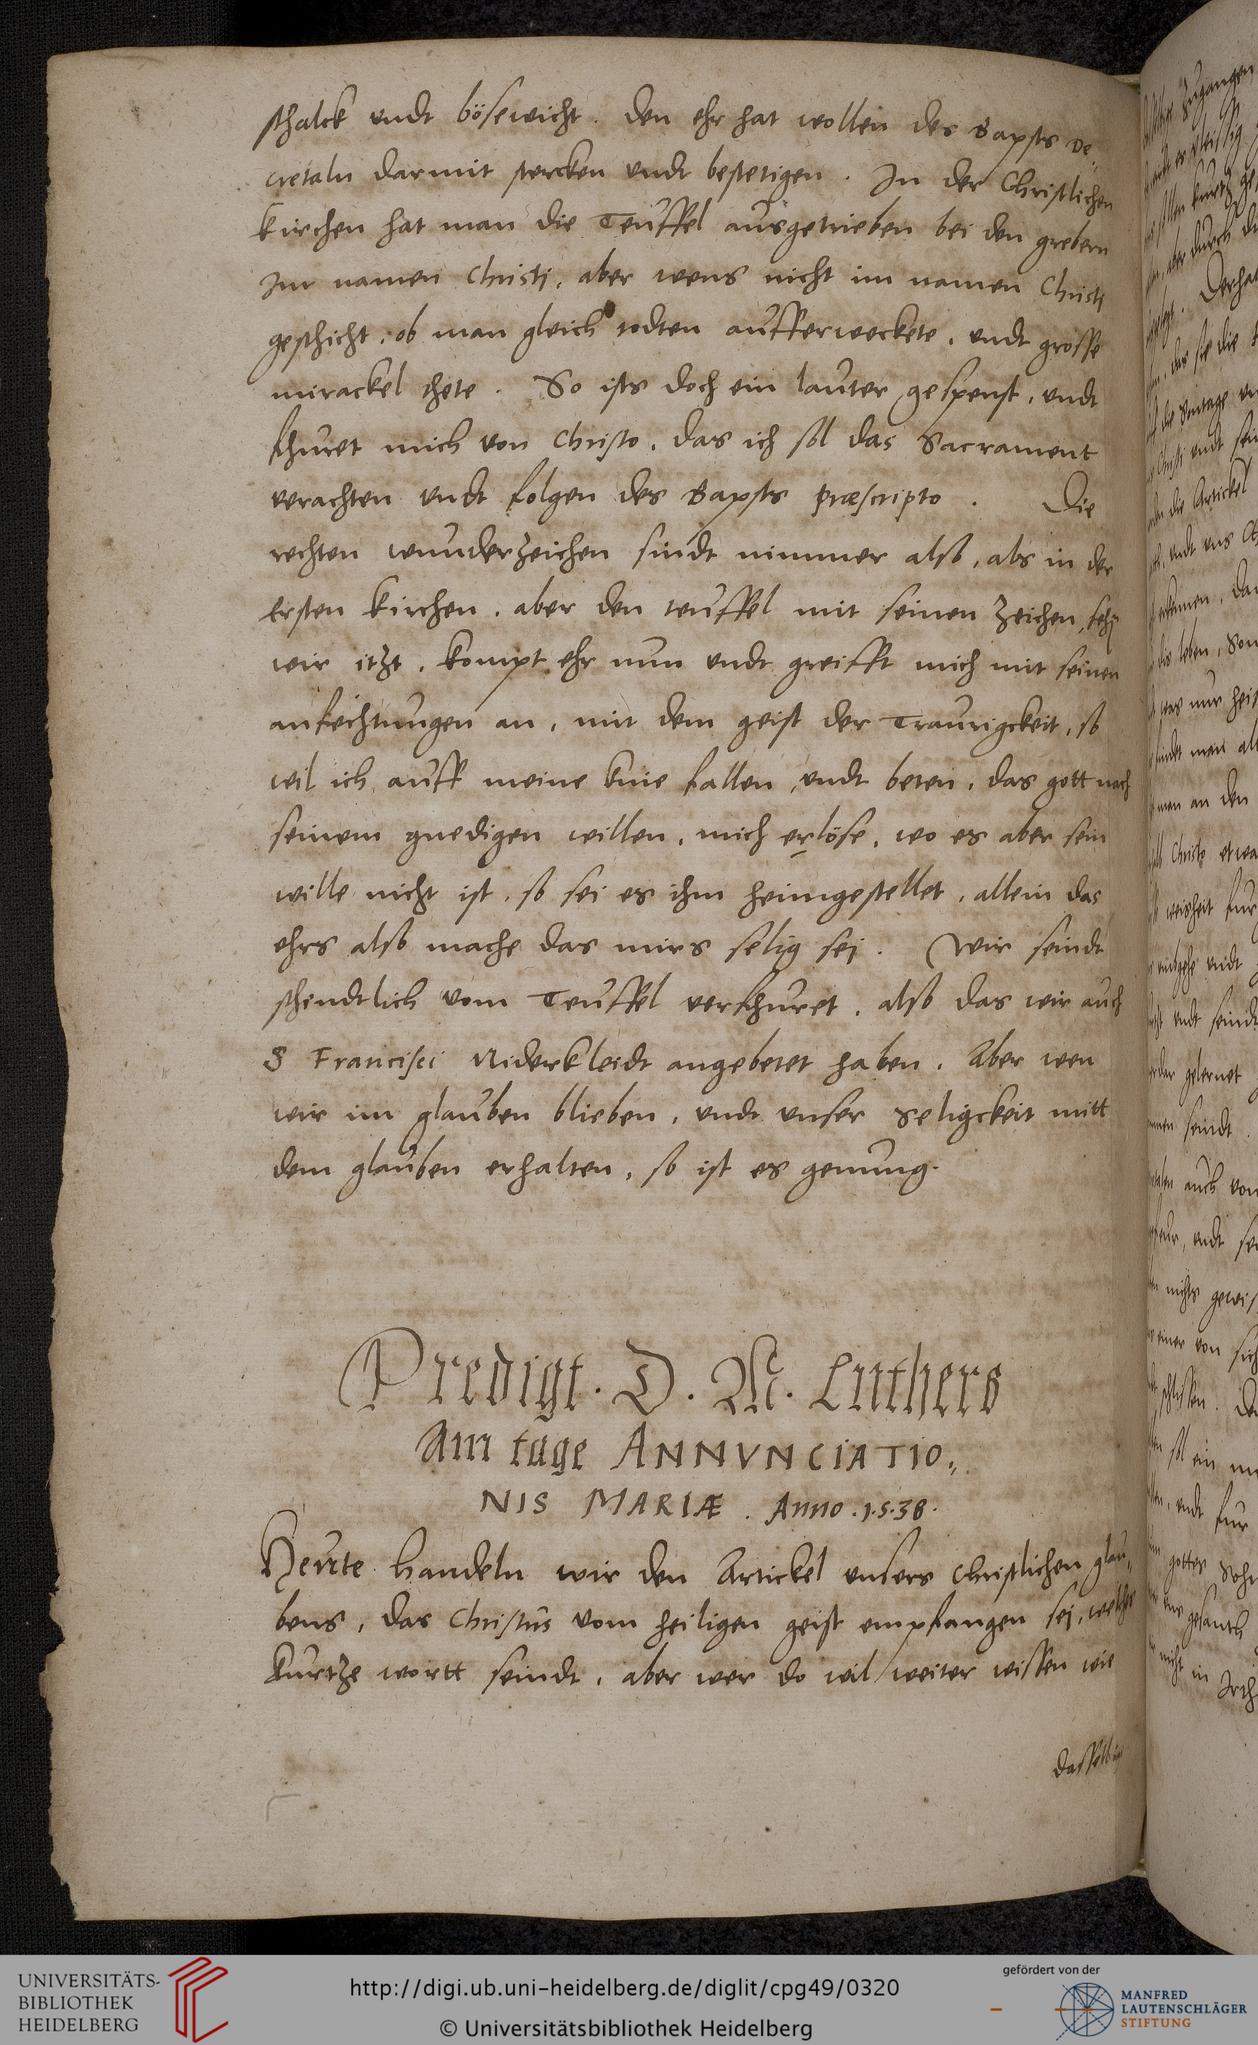 schalck vndt bösewicht. den ehr hat wollen des Bapsts De„
cretaln darmit stercken vndt bestetigen. In der Christlichen
kirchen hat man die Teuffel ausgetrieben bei den grebern
Im namen Christi, aber wens nicht im namen Christi
geschicht, ob man gleich todten aufferweckete, vndt grosse
mirackel thete. So ists doch ein lauter gespenst, vndt
fhuret mich von Christo, das ich sol das Sacrament
verachten vndt folgen des Bapsts præscripto. Die
rechten wunderzeichen sindt nimmer also, als in der
ersten kirchen, aber den teuffel mit seinen zeichen,
wir itzt, kompt ehr nun vndt greifft mich mit seinen
anfechtungen an, mit dem geist der Traurigckeit, so
wil ich auff meine knie fallen vndt beten, das gott nach
seinem gnedigen willen, mich erlöse, wo es aber sein
wille nicht ist, so sei es ihm heimgestellet, allein das
ehrs also mache das mirs selig sej. Wir seindt
schendtlich vom Teuffel verfhuret, also das wir auch
S Francisci Niderkleidt angebetet haben. Aber wen
wir im glauben blieben, vndt vnser Seligckeit mitt
dem glauben erhalten, so ist es genung.
Predigt. D. M. Luthers
Am tage ANNVNCIATIO„
NIS MARIÆ. Anno. 1.5.38.
Heutte handeln wir den Artickel vnsers Christlichen glau„
bens, das Christus vom heiligen geist empfangen sej, welches
kurtze wortt seindt, aber wer do wil weiter wissen wie
UNIVERSITÄTS-
BIBLIOTHEK
HEIDELBERG
http://digi.ub.uni-heidelberg.de/diglit/cpg49/0320
© Universitätsbibliothek Heidelberg
gefördert von der
MANFRED
LAUTENSCHLÄGER
STIFTUNG